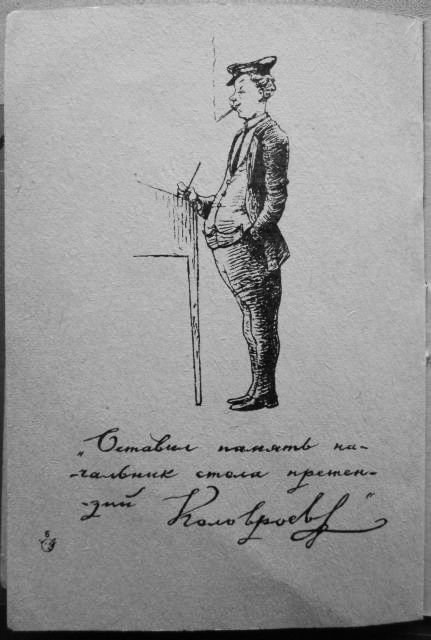 „Оставил память на-
-чальник стола претен-
-зий Коловроев"